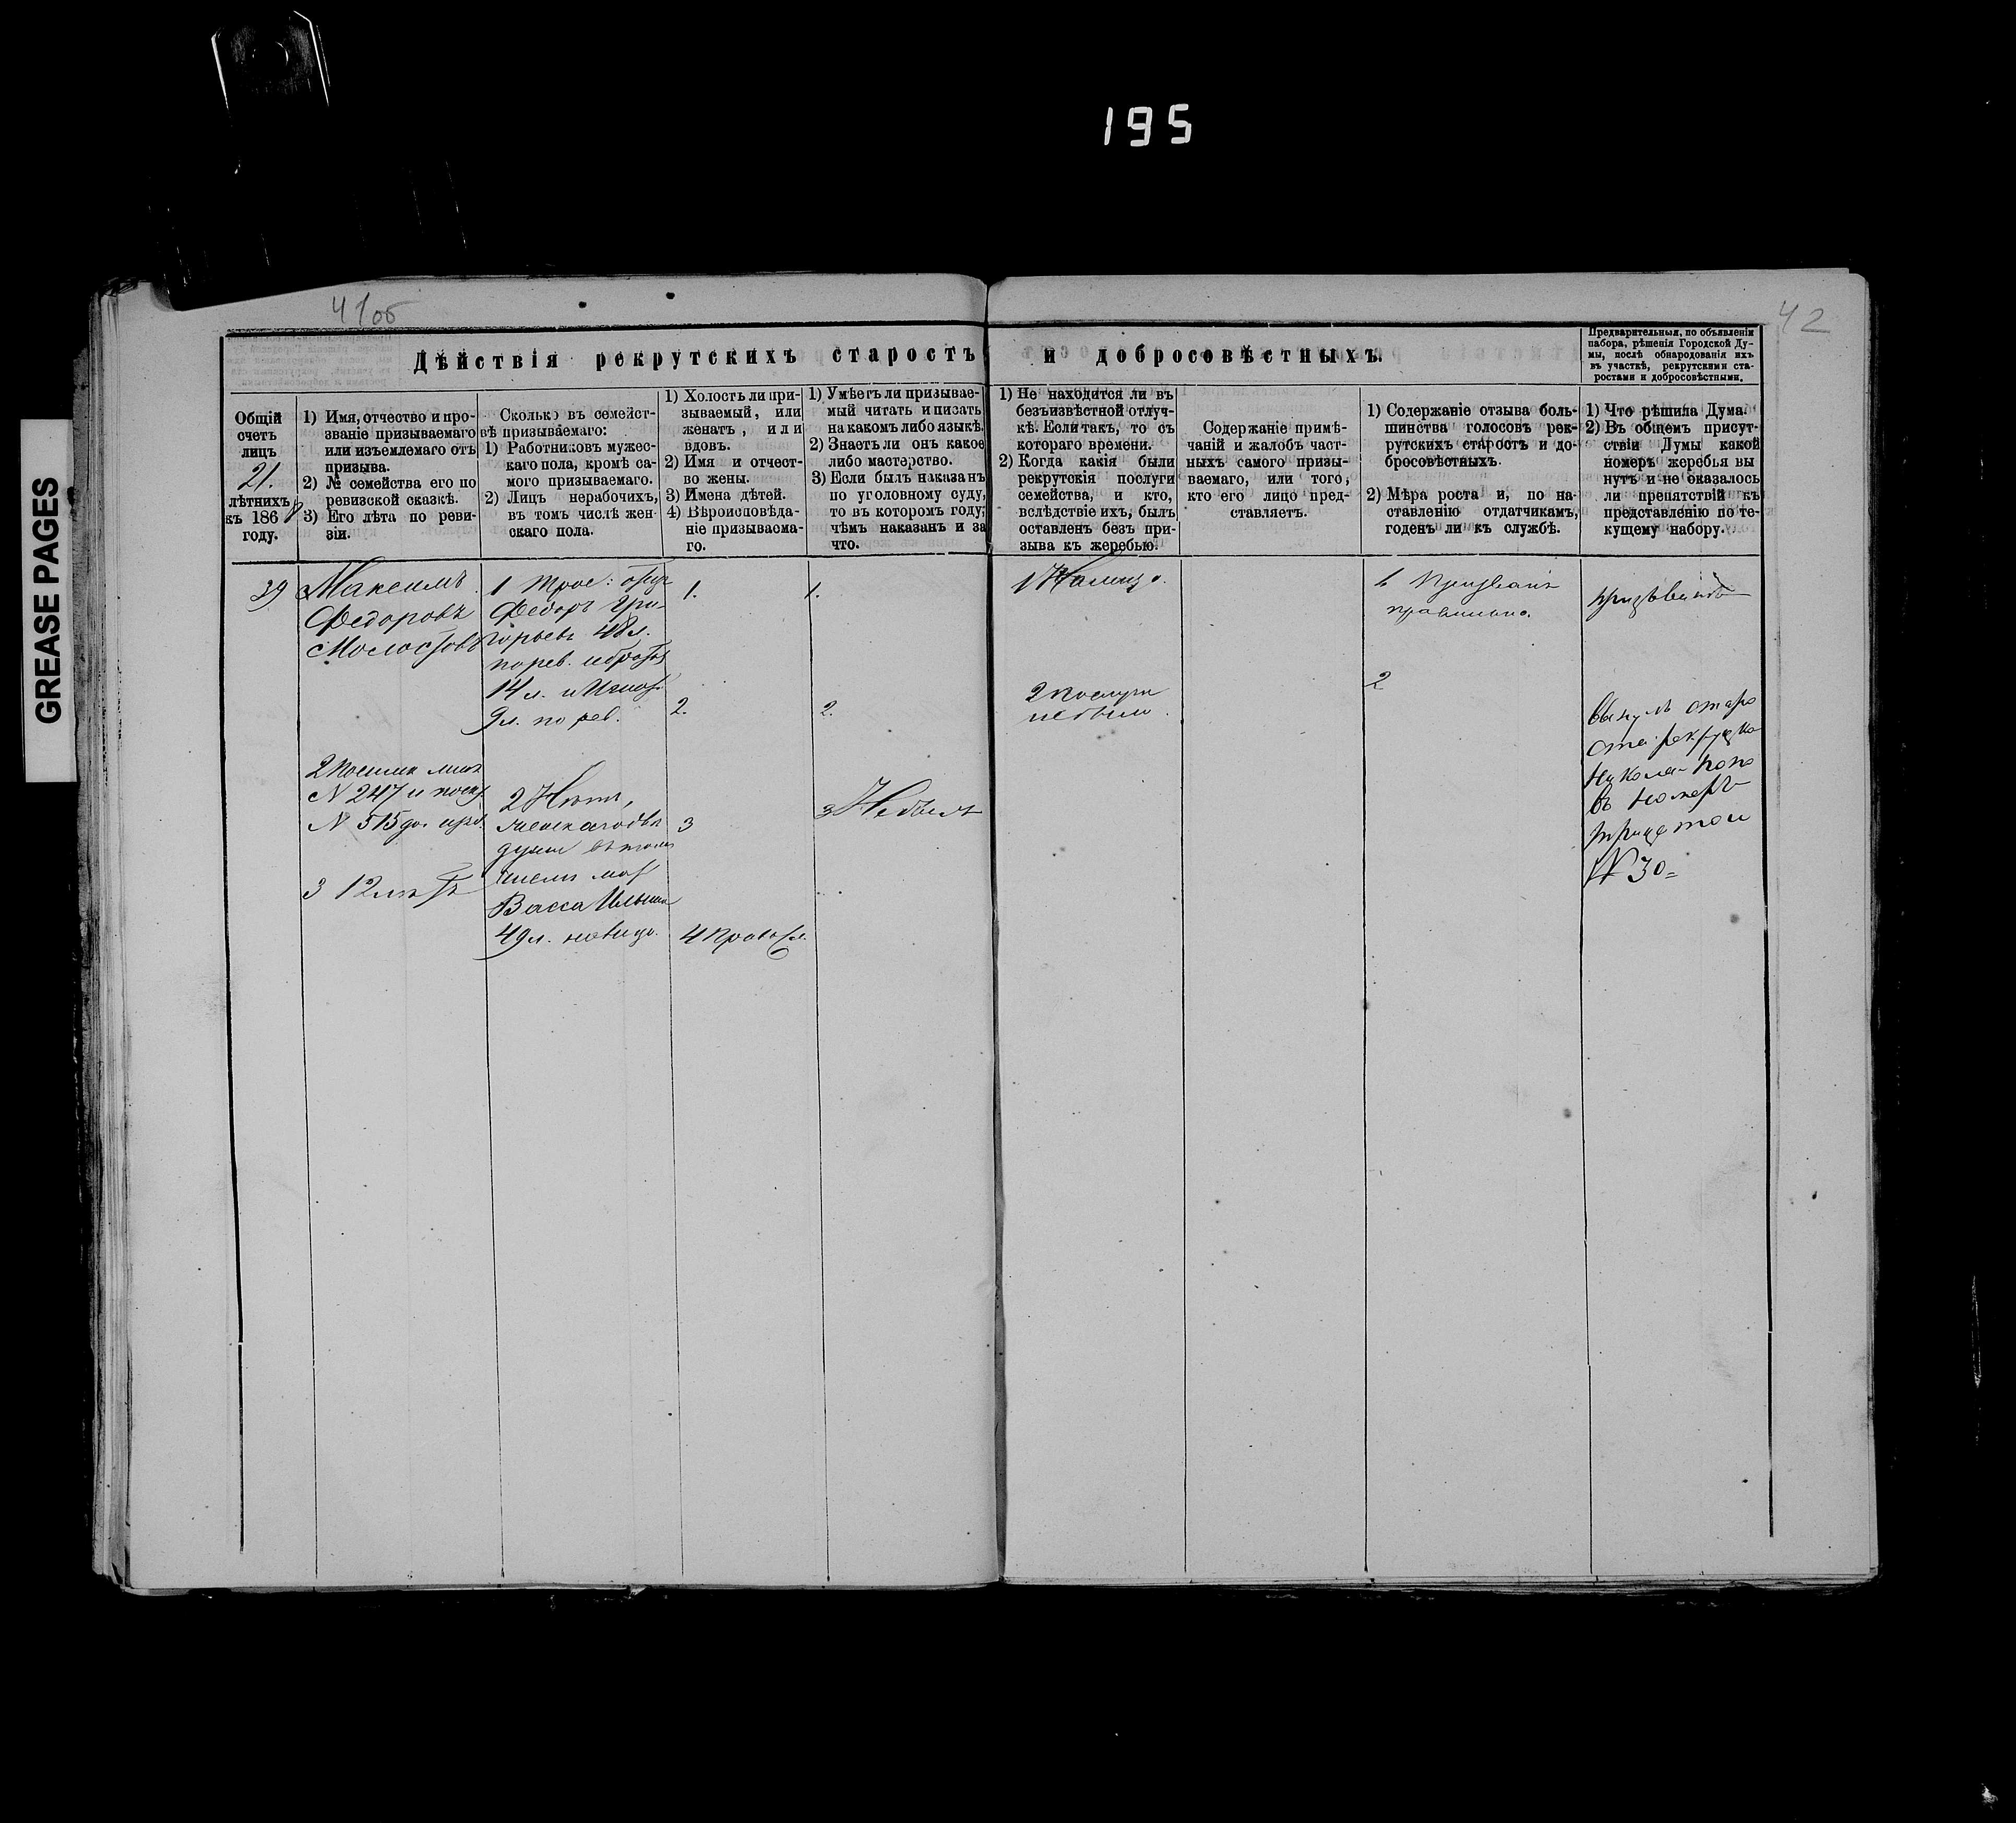 195
GREASE PAGES
41об
42
Дѣйствія рекрутскихъ старостъ и добросовѣстныхъ.
Предварительныя, по объявленіи
набора, рѣшенія Городской Ду-
мы, послѣ обнародованія ихъ
въ участкѣ, рекрутскими ста-
ростами и добросовѣстными.
Общій
счетъ
лицъ
21.
лѣтнихъ
къ 186
году.
1) Имя, отчество и про-
званіе призываемаго
или изъемлемаго отъ
призыва.
2) № семейства его по
ревизской сказкѣ.
3) Его лѣта по реви-
зіи.
Сколько въ семейст-
вѣ призываемаго:
1) Работниковъ мужес-
каго пола, кромѣ са-
мого призываемаго.
2) Лицъ нерабочихъ,
въ томъ числѣ жен-
скаго пола.
1) Холостъ ли при-
зываемый, или
женатъ, или
вдовъ.
2) Имя и отчест-
во жены.
3) Имена дѣтей.
4) Вѣроисповѣда-
ніе призываема-
го.
1) Умѣетъ ли призывае-
мый читать и писать
на какомъ либо языкѣ.
2) Знаетъ ли онъ какое
либо мастерство.
3) Если былъ наказанъ
по уголовному суду,
то въ которомъ году,
чѣмъ наказанъ и за
что.
1) Не находится ли въ
безъизвѣстной отлуч-
кѣ. Если такъ, то съ
котораго времени.
2) Когда какія были
рекрутскія послуги
семейства, и кто,
вслѣдствіе ихъ, былъ
оставленъ безъ при-
зыва къ жеребью.
Содержаніе примѣ-
чаній и жалобъ част-
ныхъ самого призы-
ваемаго, или того,
кто его лицо пред-
ставляетъ.
1) Содержаніе отзыва боль-
шинства голосовъ рек-
рутскихъ старостъ и до-
бросовѣстныхъ.
2) Мѣра роста и, по на-
ставленію отдатчикамъ,
годенъ ли къ службѣ.
1) Что рѣшила Дума.
2) Въ общемъ присут-
ствіи Думы какой
номеръ жеребья вы
нутъ и не оказалось
ли препятствій къ
представленію по те-
кущему набору.
39
Максимъ
Федоровъ
Молостовъ
2
№ 247 и
№ 515
3 12 лѣтъ
1 Трое: отецъ
Федоръ Гри-
горьевъ 48 л.
по рев.
14 л. и Игнат
9 л. по рев.
2
женскаго
душъ въ томъ
числѣ мат
Васса Ильина
49 л.
1.
2.
3
4 Правосл.
1.
2.
3 Небылъ
1
2 послугъ
небыло.
1 Призванъ
правильно.
2
призвать
вынулъ старо
ста рекрутской
Николай Попо
въ номеръ
тридцатой
№ 30=